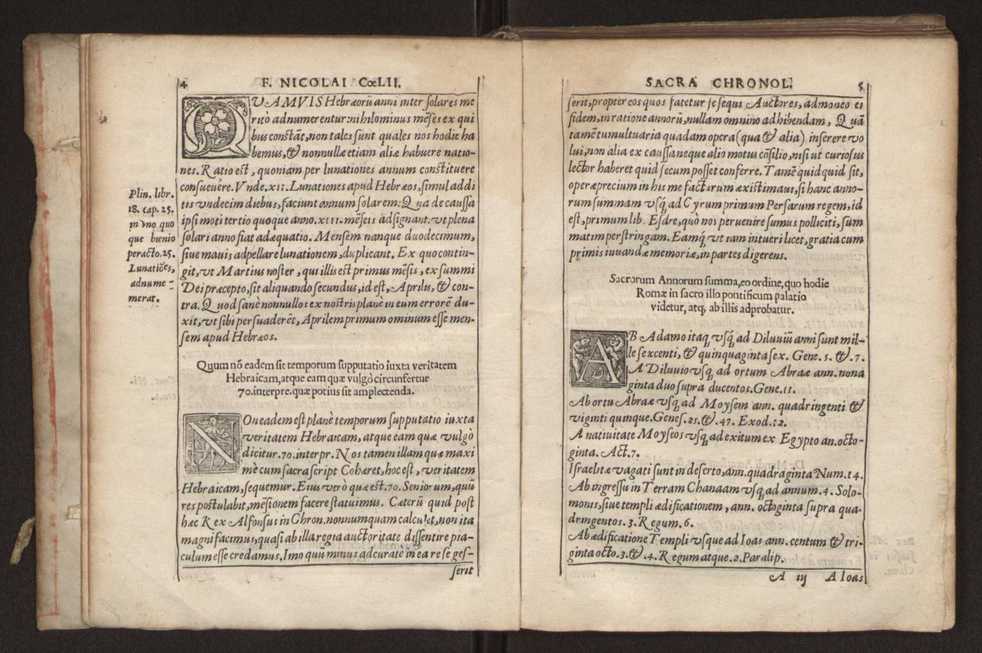 4 F. NICOLAI CœLII.
QVAMVIS Hebraorũ anni inter solares me
ritò adnumerentur nihilominus mẽses ex qui
bus constãt, non tales sunt quales nos hodie ha
bemus, & nonnullæ etiam aliæ habuere natio-
nes. Ratio est, quoniam per lunationes annum constituere
consuevêre. Vnde .xii. Lunationes apud Hebræos, simul addi
tis vndecim diebus, faciunt annum solarem: Qua de caussa
ipsi moti tertio quoque anno .xiii. mẽseis adsignant. vt plena
solari anno fiat adæquatio. Mensem nanque duodecimum,
siue mauis adpellare lunationem, duplicant. Ex quo contin-
git, vt Martius noster, qui illis est primus mẽsis, ex summi
Dei præcepto, sit aliquando secundus, id est, Aprilis, & con-
tra. Quod sanè nonnullos ex nostris planè in eum errorẽ du-
xit, vt sibi persuaderẽt, Aprilem primum ominum esse men-
sem apud Hebræos.
Plin. libr.
18. cap. 25.
in vno quo
que bienio
peracto. 25.
Lunatiões,
adnume-
merat.
Quum nõ eadem sit temporum supputatio iuxta veritatem
Hebraicam, atque eam quæ vulgò circunfertur
70. interpre. quæ potius sit amplectenda.
NOn eadem est planè temporum supputatio iuxta
veritatem Hebraicam, atque eam quæ vulgò
dicitur .70. interpr. Nos tamen illam quæ maxi
mè cum sacra script Cohæret, hoc est, veritatem
Hebraicam, sequemur. Eius verò quæ est .70. Seniorum, quũ
res postulabit, mẽsionem facere statuimus. Cæterũ quid post
hæc Rex Alfonsus in Chron. nonnumquam calculet, non ita
magni facimus, quasi ab illa regia auctoritate dissentire pia-
culum esse credamus. Imo qui minus adcurate in ea re se ges-
serit
SACRA CHRONOL. 5
serit, propter eos quos fatetur se sequi Auctores, admoneo ei
fidem, in ratione annorũ, nullam omnino adhibendam, Quã
tamẽ tumultuaria quadam opera (qua & alia) inserere vo
lui, non alia ex caussa neque alio motus cõsilio, nisi ut curiosus
lector haberet quid secum posset conferre. Tamẽ quidquid sit,
operæprecium in his me facturum æxistimaui, si hanc anno-
rum summam vsq̃, ad Cyrum primum Persarum regem, id
est, primum lib. Esdre, quò nos peruenire sumus polliciti, sum
matim perstringam. Eamq̃ vt eam intueri lices, gratia cum
primis iuuandæ memoriæ, in partes digerens.
Sacrorum Annorum summa, eo ordine, quo hodie
Romæ in sacro illo pontificum palatio
videtur, atq, ab illis adprobatur.
AB Adamo itaq̃ vsq̃ ad Diluuiũ anni sunt mil-
le sexcenti, & quinquaginta sex. Gene. 5. & .7.
A Diluuio vsq̃ ad ortum Abraæ ann. nona
ginta duo supra ducentos. Gene. 11.
Ab ortu Abraæ vsq̃ ad Moysem ann. quadringenti &
viginti quinque. Genes. 21. & .47. Exod. 12.
A natiuitate Moyseos vsq̃ ad exitum ex Egypto an. octo-
ginta. Act. 7.
Israelitæ vagati sunt in deserto, ann. quadraginta Num. 14.
Ab ingressu in Terram Chanaam vsq̃ ad annum .4. Solo-
monis, siue templi ædificationem, ann. octoginta supra qua-
dringentos. 3. Regum. 6.
Ab ædificatione Templi vsque ad Ioas ann. centum & tri-
ginta octo. 3. & .4. Regum atque. 2. Paralip.
A iij A Ioas